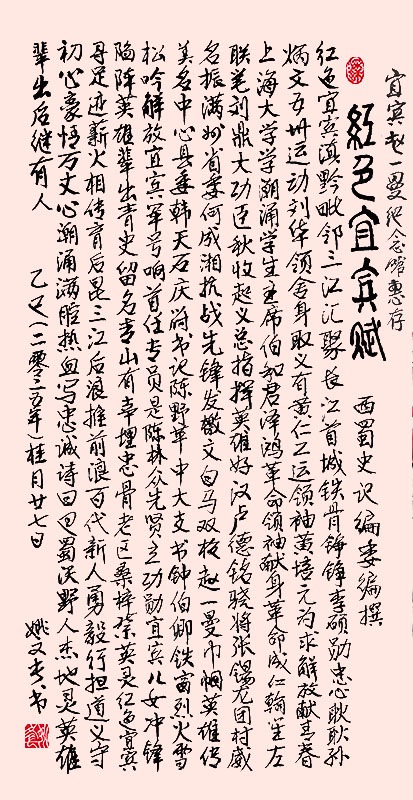 宜宾赵一曼纪念馆惠存
红色宜宾赋
西蜀史记编委编撰
红色宜宾滇黔毗邻三江汇聚长江首城铁骨铮锋李硕勋忠心耿耿孙
炳文五卅运动刘华领舍身取义有黄仁工运领袖黄培元为求解放献青春
上海大学学潮涌学生主席伯和君泽鸿革命领袖献身革命成仁翰笙左
联笔刘鼎大功臣秋收起义总指挥英雄好汉卢德铭骁将张锡龙团村威
名振满州省委何成湘抗战先锋发檄文白马双枪赵一曼巾帼英雄传
美名中心县委韩天石庆府书记陈野苹中大支书钟伯卿铁窗烈火雪
松吟解放宜宾军号响首任专员是陈林众先贤立功勋宜宾儿女冲锋
陷阵英雄辈出青史留名青山有幸埋忠骨老区桑梓祭英灵红色宜宾
寻足迹薪火相传育后昆三江后浪推前浪百代新人勇毅行担道义守
初心豪情万丈心潮涌满腔热血写忠诚诗曰巴蜀沃野人杰地灵英雄
辈出后继有人
乙巳(二零二五年)桂月廿七日
姚义书